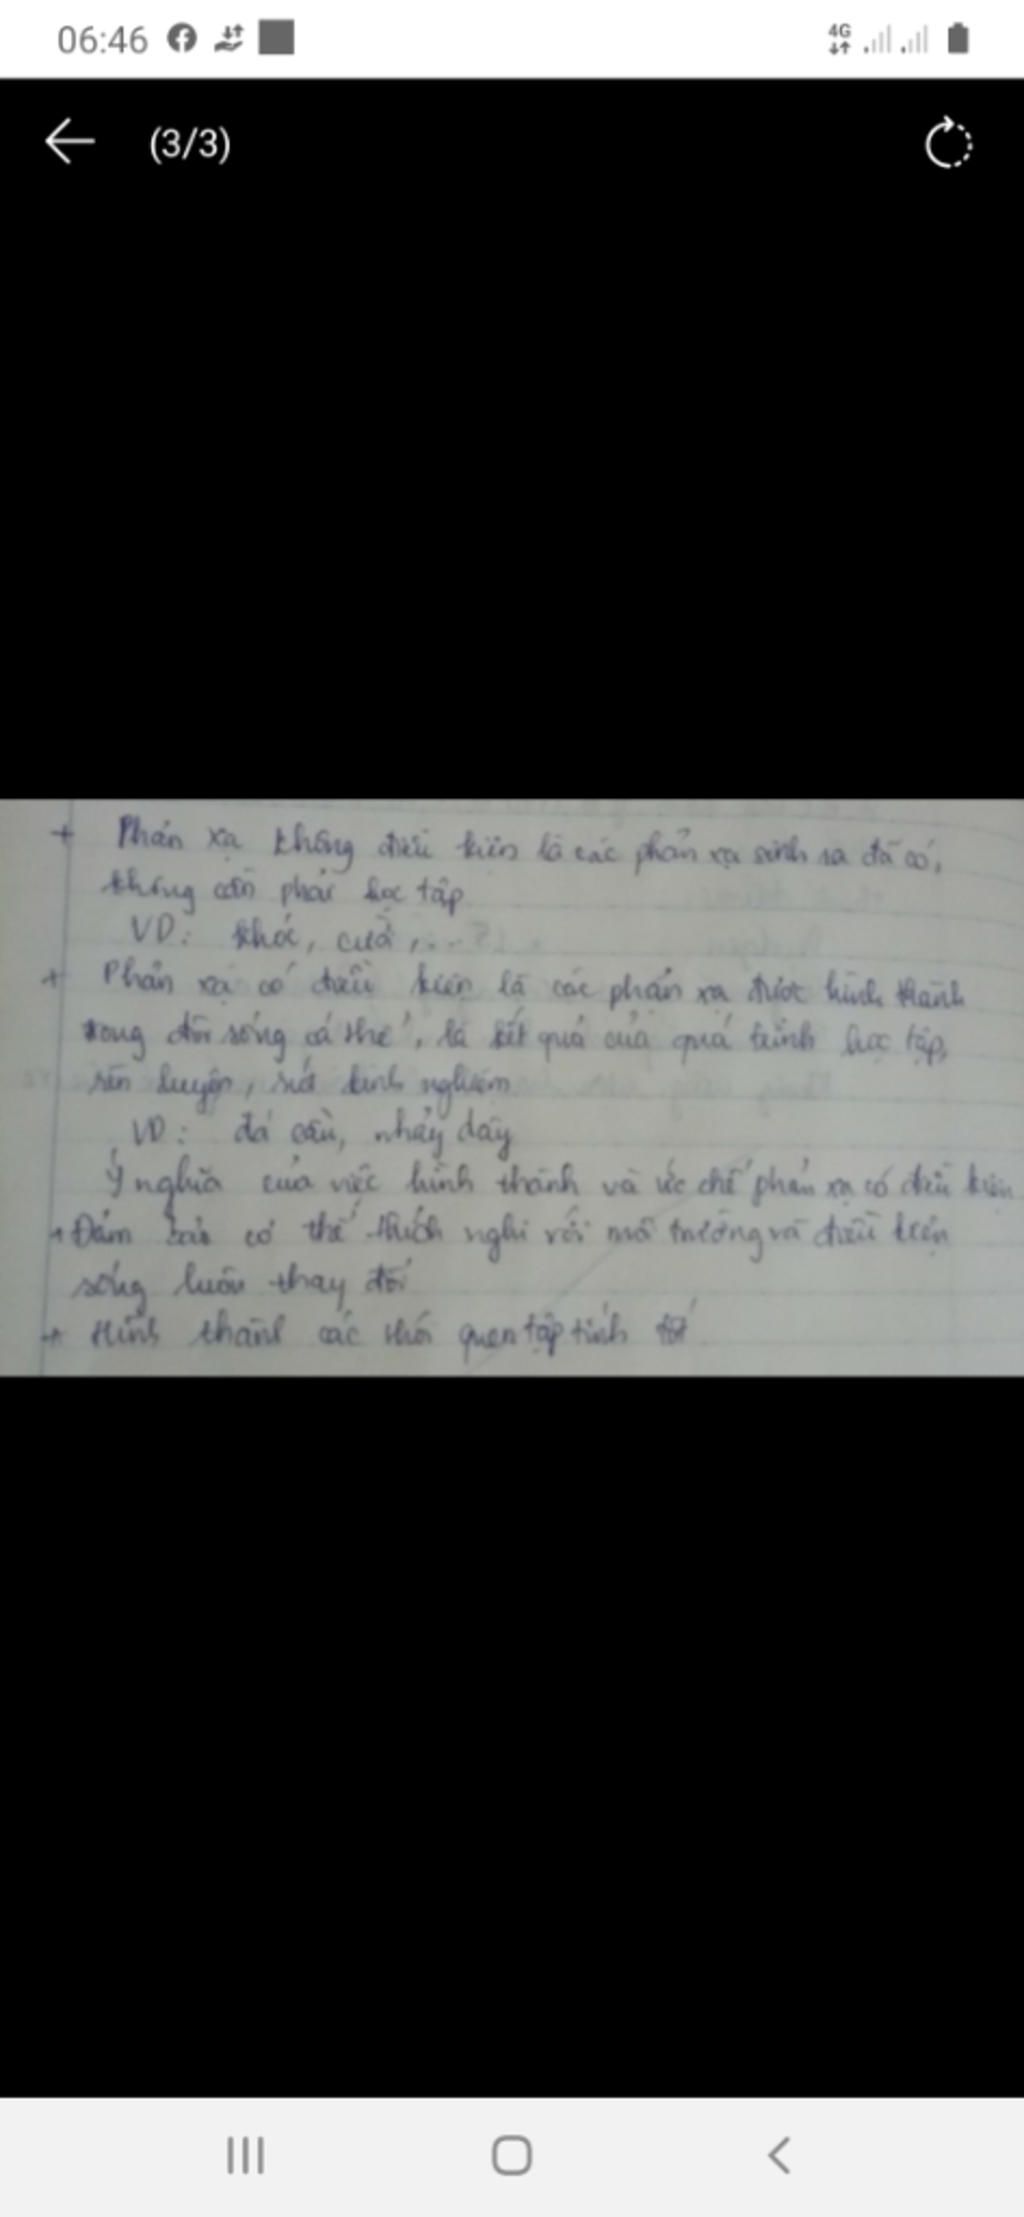 06:46
4G
(3/3)
+ Phản xạ không điều kiện là các phản xạ sinh ra đã có,
không cần phải học tập
VD: khóc, cười,...
+ Phản xạ có điều kiện là các phản xạ được hình thành
trong đời sống cá thể, là kết quả của quá trình học tập,
rèn luyện, rút kinh nghiệm
VD: đá cầu, nhảy dây
Ý nghĩa của việc hình thành và ức chế phản xạ có điều kiện
+ Đảm bảo cơ thể thích nghi với môi trường và điều kiện
sống luôn thay đổi
+ Hình thành các thói quen tập tính tốt